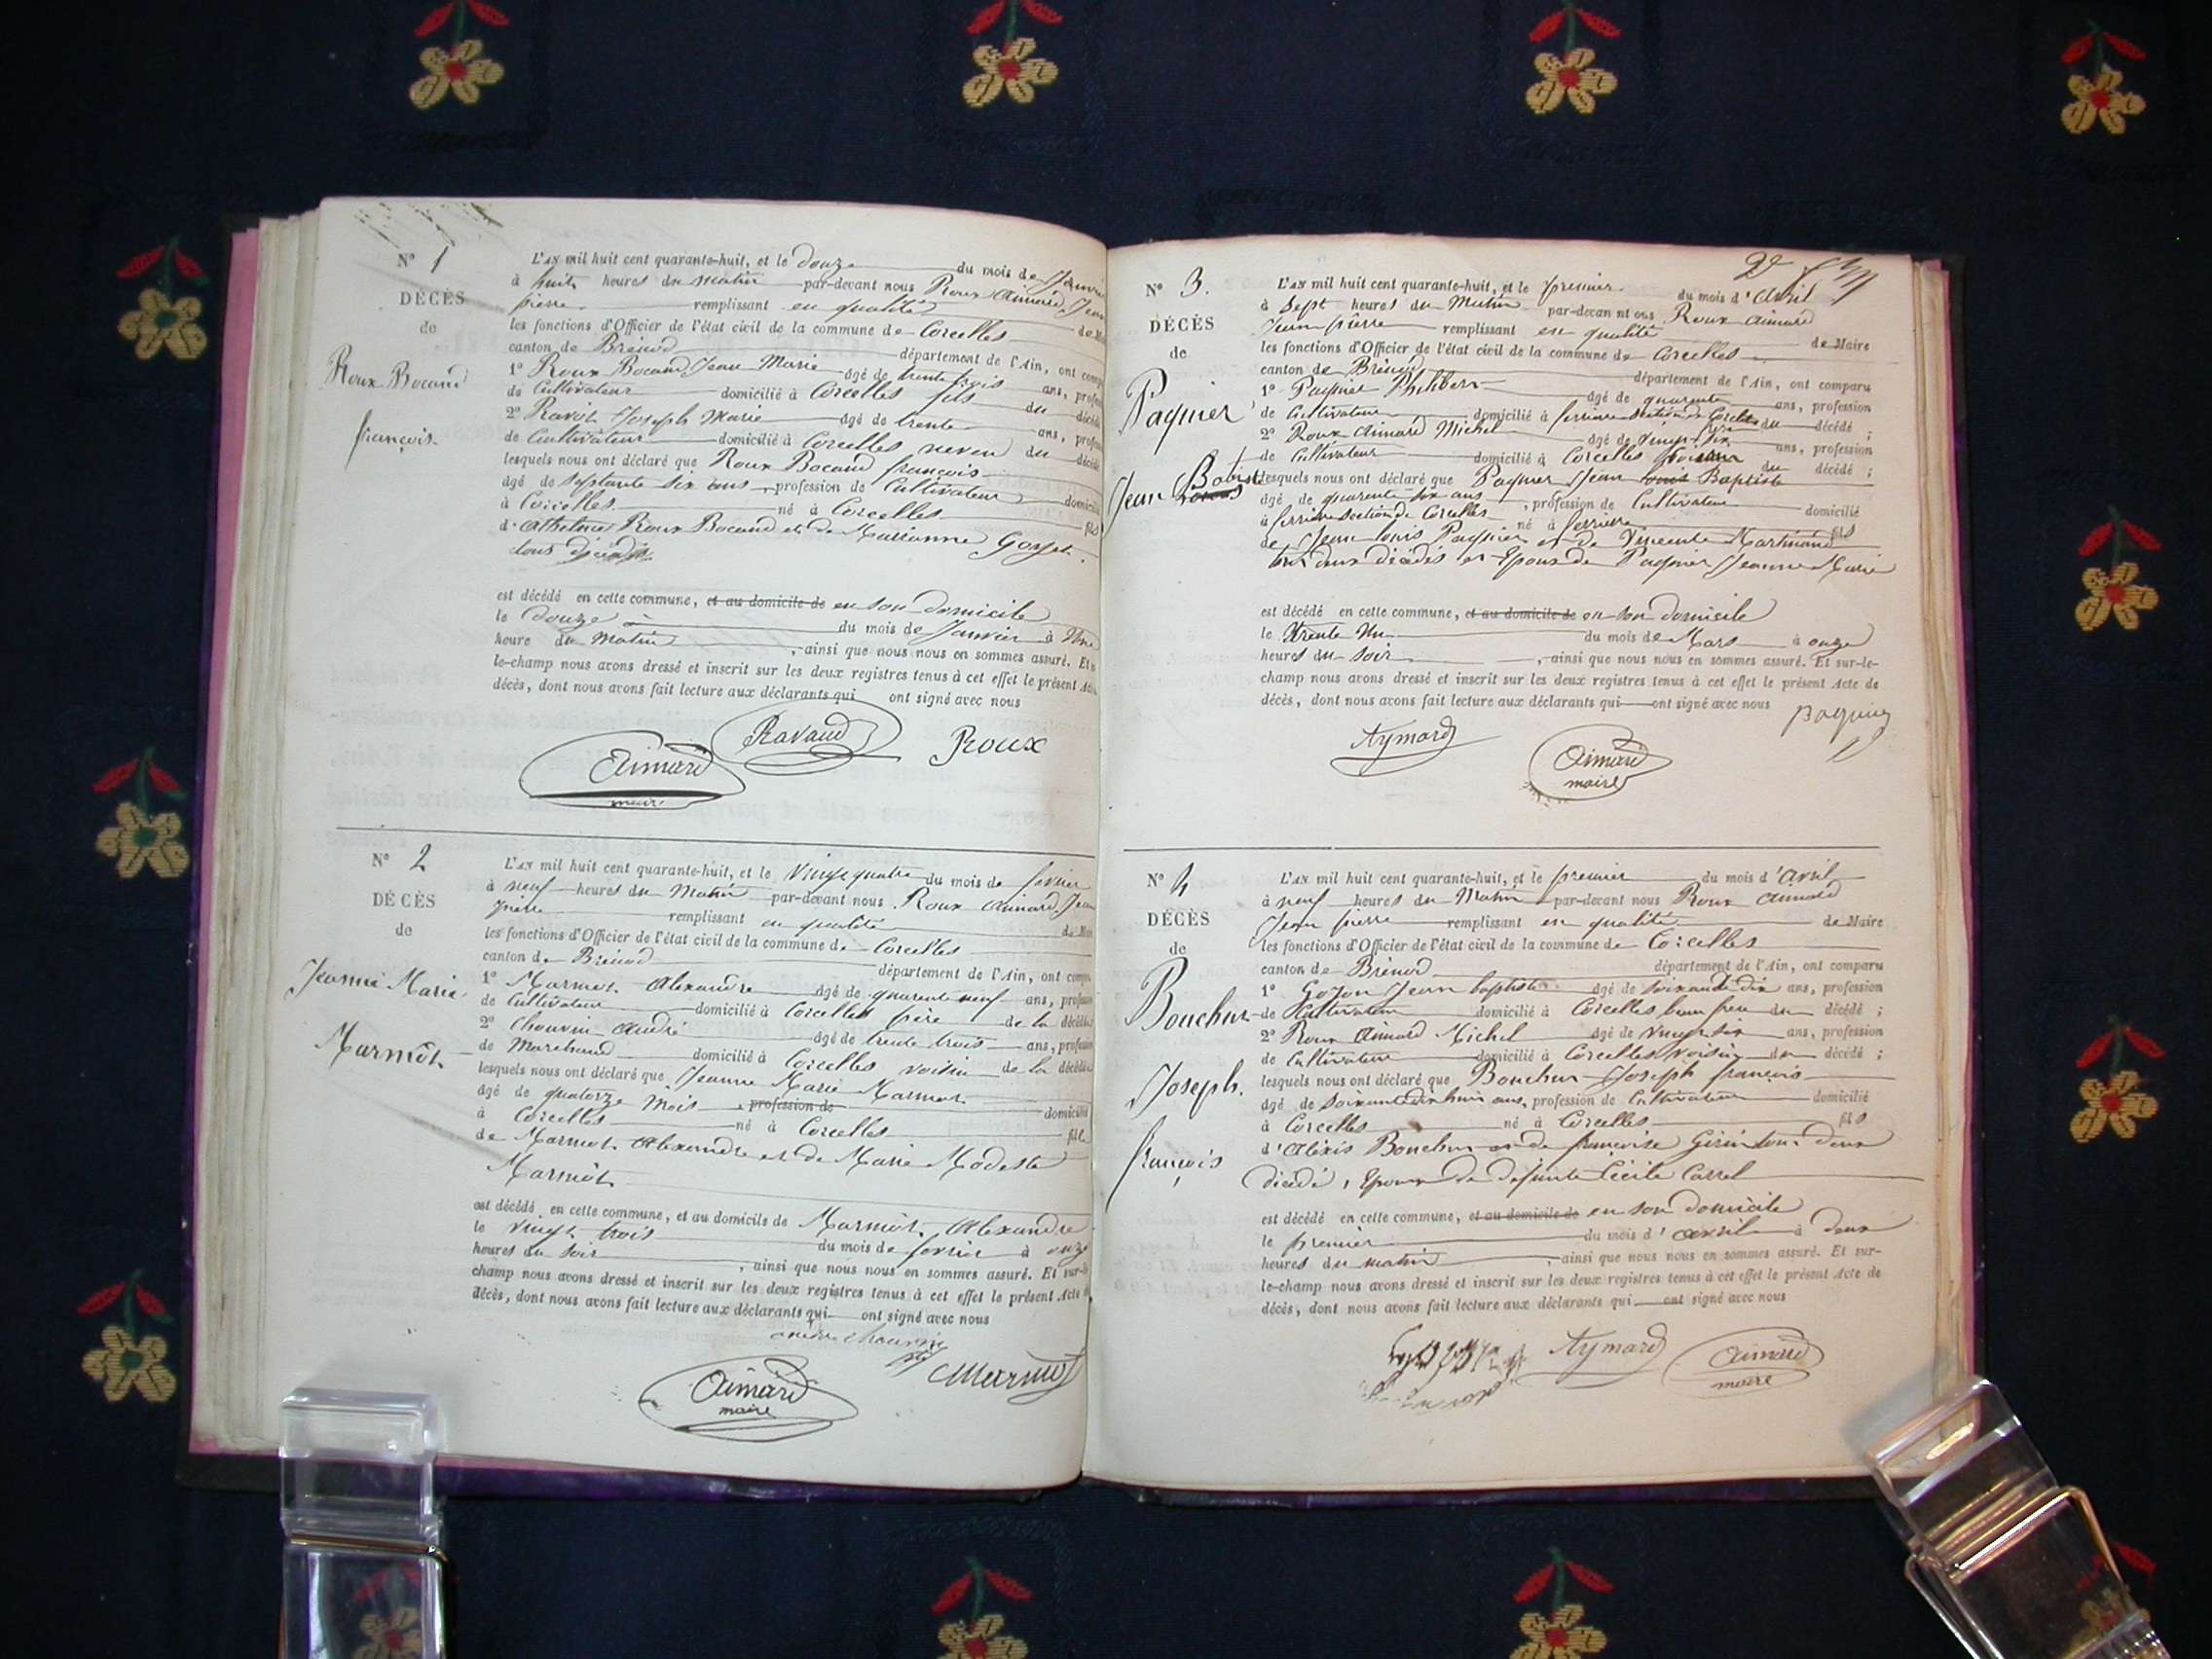 N° 1
DÉCÈS
de
Roux Bocand
françois
L'AN mil huit cent quarante-huit, et le douze du mois de Janvier
à huit heures du matin par-devant nous Roux Aimard Jean
pierre remplissant en qualité de Maire
les fonctions d'Officier de l'état civil de la commune de Corcelles
canton de Brénod département de l'Ain, ont comparu
1° Roux Bocand Jean Marie âgé de trente trois ans, profession
de Cultivateur domicilié à Corcelles fils du décédé
2° Ravot Joseph Marie âgé de trente ans, profession
de Cultivateur domicilié à Corcelles neveu du décédé
lesquels nous ont déclaré que Roux Bocand françois
âgé de septante six ans, profession de Cultivateur domicilié
à Corcelles né à Corcelles fils
d' Roux Bocand et de Marianne
tous décédés
est décédé en cette commune, et au domicile de en son domicile
le douze du mois de Janvier à Une
heure du matin, ainsi que nous nous en sommes assuré. Et
le-champ nous avons dressé et inscrit sur les deux registres tenus à cet effet le présent Acte
décès, dont nous avons fait lecture aux déclarants qui ont signé avec nous
Ravaud Roux
Aimard
maire
N° 2
DÉCÈS
de
Jeanne Marie
Marmot
L'AN mil huit cent quarante-huit, et le Vingt quatre du mois de février
à neuf heures du Matin par-devant nous Roux Aimard Jean
pierre remplissant en qualité de Maire
les fonctions d'Officier de l'état civil de la commune de Corcelles
canton de Brénod département de l'Ain, ont comparu
1° Marmot Alexandre âgé de quarente neuf ans, profession
de Cultivateur domicilié à Corcelles père de la décédée
2° Chouvin André âgé de trente trois ans, profession
de Marchand domicilié à Corcelles voisin de la décédée
lesquels nous ont déclaré que Jeanne Marie Marmot
âgé de quatorze mois, profession de domicilié
à Corcelles né à Corcelles fille
de Marmot Alexandre et de Marie Modeste
Marmot
est décédé en cette commune, et au domicile de Marmot Alexandre
le vingt trois du mois de fevrier à onze
heures du soir, ainsi que nous nous en sommes assuré. Et sur-le
champ nous avons dressé et inscrit sur les deux registres tenus à cet effet le présent Acte
décès, dont nous avons fait lecture aux déclarants qui ont signé avec nous
Marmot
Aimard
maire
N° 3.
DÉCÈS
de
Paquier
Jean Batiste
L'AN mil huit cent quarante-huit, et le premier du mois d'Avril
à Sept heures du Matin par-devant nous Roux Aimard
Jean pierre remplissant en qualité de Maire
les fonctions d'Officier de l'état civil de la commune de Corcelles
canton de Brénod département de l'Ain, ont comparu
1° Paquier Philibert âgé de quarente ans, profession
de Cultivateur domicilié à ferriere section de Corcelles frere du décédé ;
2° Roux Aimard Michel âgé de vingt six ans, profession
de Cultivateur domicilié à Corcelles voisin du décédé ;
lesquels nous ont déclaré que Paquier Jean Louis Baptiste
âgé de quarente six ans, profession de Cultivateur domicilié
à ferriere section de Corcelles né à ferriere fils
de Jean Louis Paquier et de Vincente Martinand
tous deux décédés et Epoux de Paquier Jeanne Marie
est décédé en cette commune, et au domicile de en son domicile
le trente Un du mois de Mars à onze
heures du soir, ainsi que nous nous en sommes assuré. Et sur-le-
champ nous avons dressé et inscrit sur les deux registres tenus à cet effet le présent Acte de
décès, dont nous avons fait lecture aux déclarants qui ont signé avec nous
paquier
Aymard
Aimard
maire
N° 4
DÉCÈS
de
Bouchus
Joseph
françois
L'AN mil huit cent quarante-huit, et le premier du mois d'Avril
à neuf heures du Matin par-devant nous Roux Aimard
Jean pierre remplissant en qualité de Maire
les fonctions d'Officier de l'état civil de la commune de Corcelles
canton de Brénod département de l'Ain, ont comparu
1° Gojon Jean baptiste âgé de soixante dix ans, profession
de Cultivateur domicilié à Corcelles beau frere du décédé ;
2° Roux Aimard Michel âgé de vingt six ans, profession
de Cultivateur domicilié à Corcelles voisin du décédé ;
lesquels nous ont déclaré que Bouchus Joseph françois
âgé de soixante dix huit ans, profession de Cultivateur domicilié
à Corcelles né à Corcelles fils
d'Alexis Bouchus et de françoise Girin tous deux
décédé, Epoux de defunte Cécile Carrel
est décédé en cette commune, et au domicile de en son domicile
le premier du mois d'avril à deux
heures du matin, ainsi que nous nous en sommes assuré. Et sur-
le-champ nous avons dressé et inscrit sur les deux registres tenus à cet effet le présent Acte de
décès, dont nous avons fait lecture aux déclarants qui ont signé avec nous
Aymard
Aimard
maire